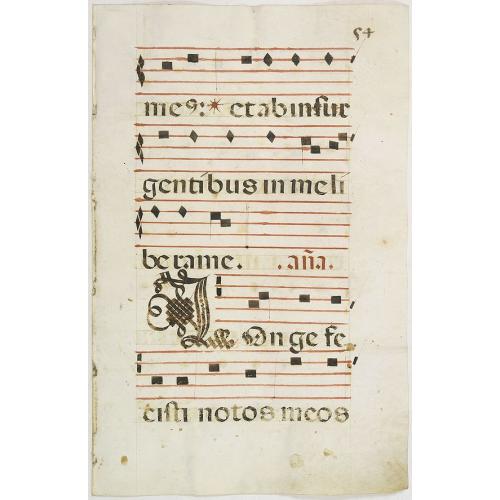 54
me9: * et ab insur
gentibus in me li
bera me. .aña.
LOnge fe
cisti notos meos